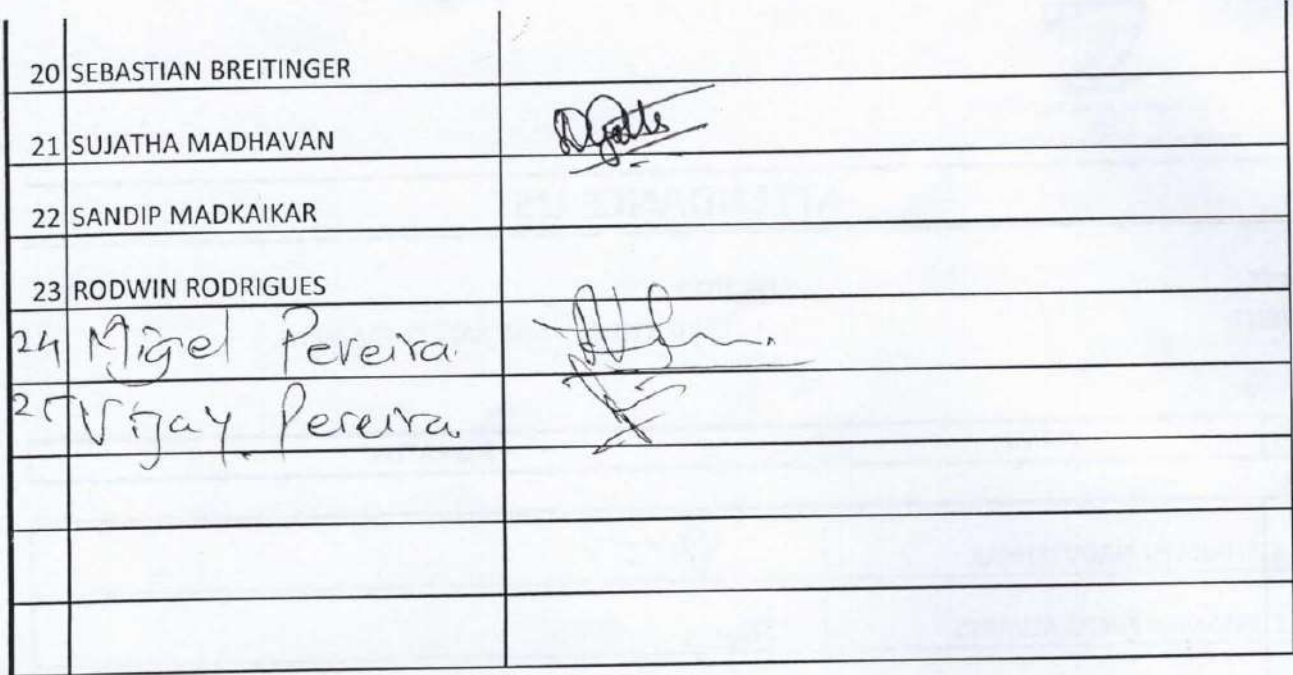 20 SEBASTIAN BREITINGER
21 SUJATHA MADHAVAN
22 SANDIP MADKAIKAR
23 RODWIN RODRIGUES
24 Migel Pereira
25 Vijay. Pereira